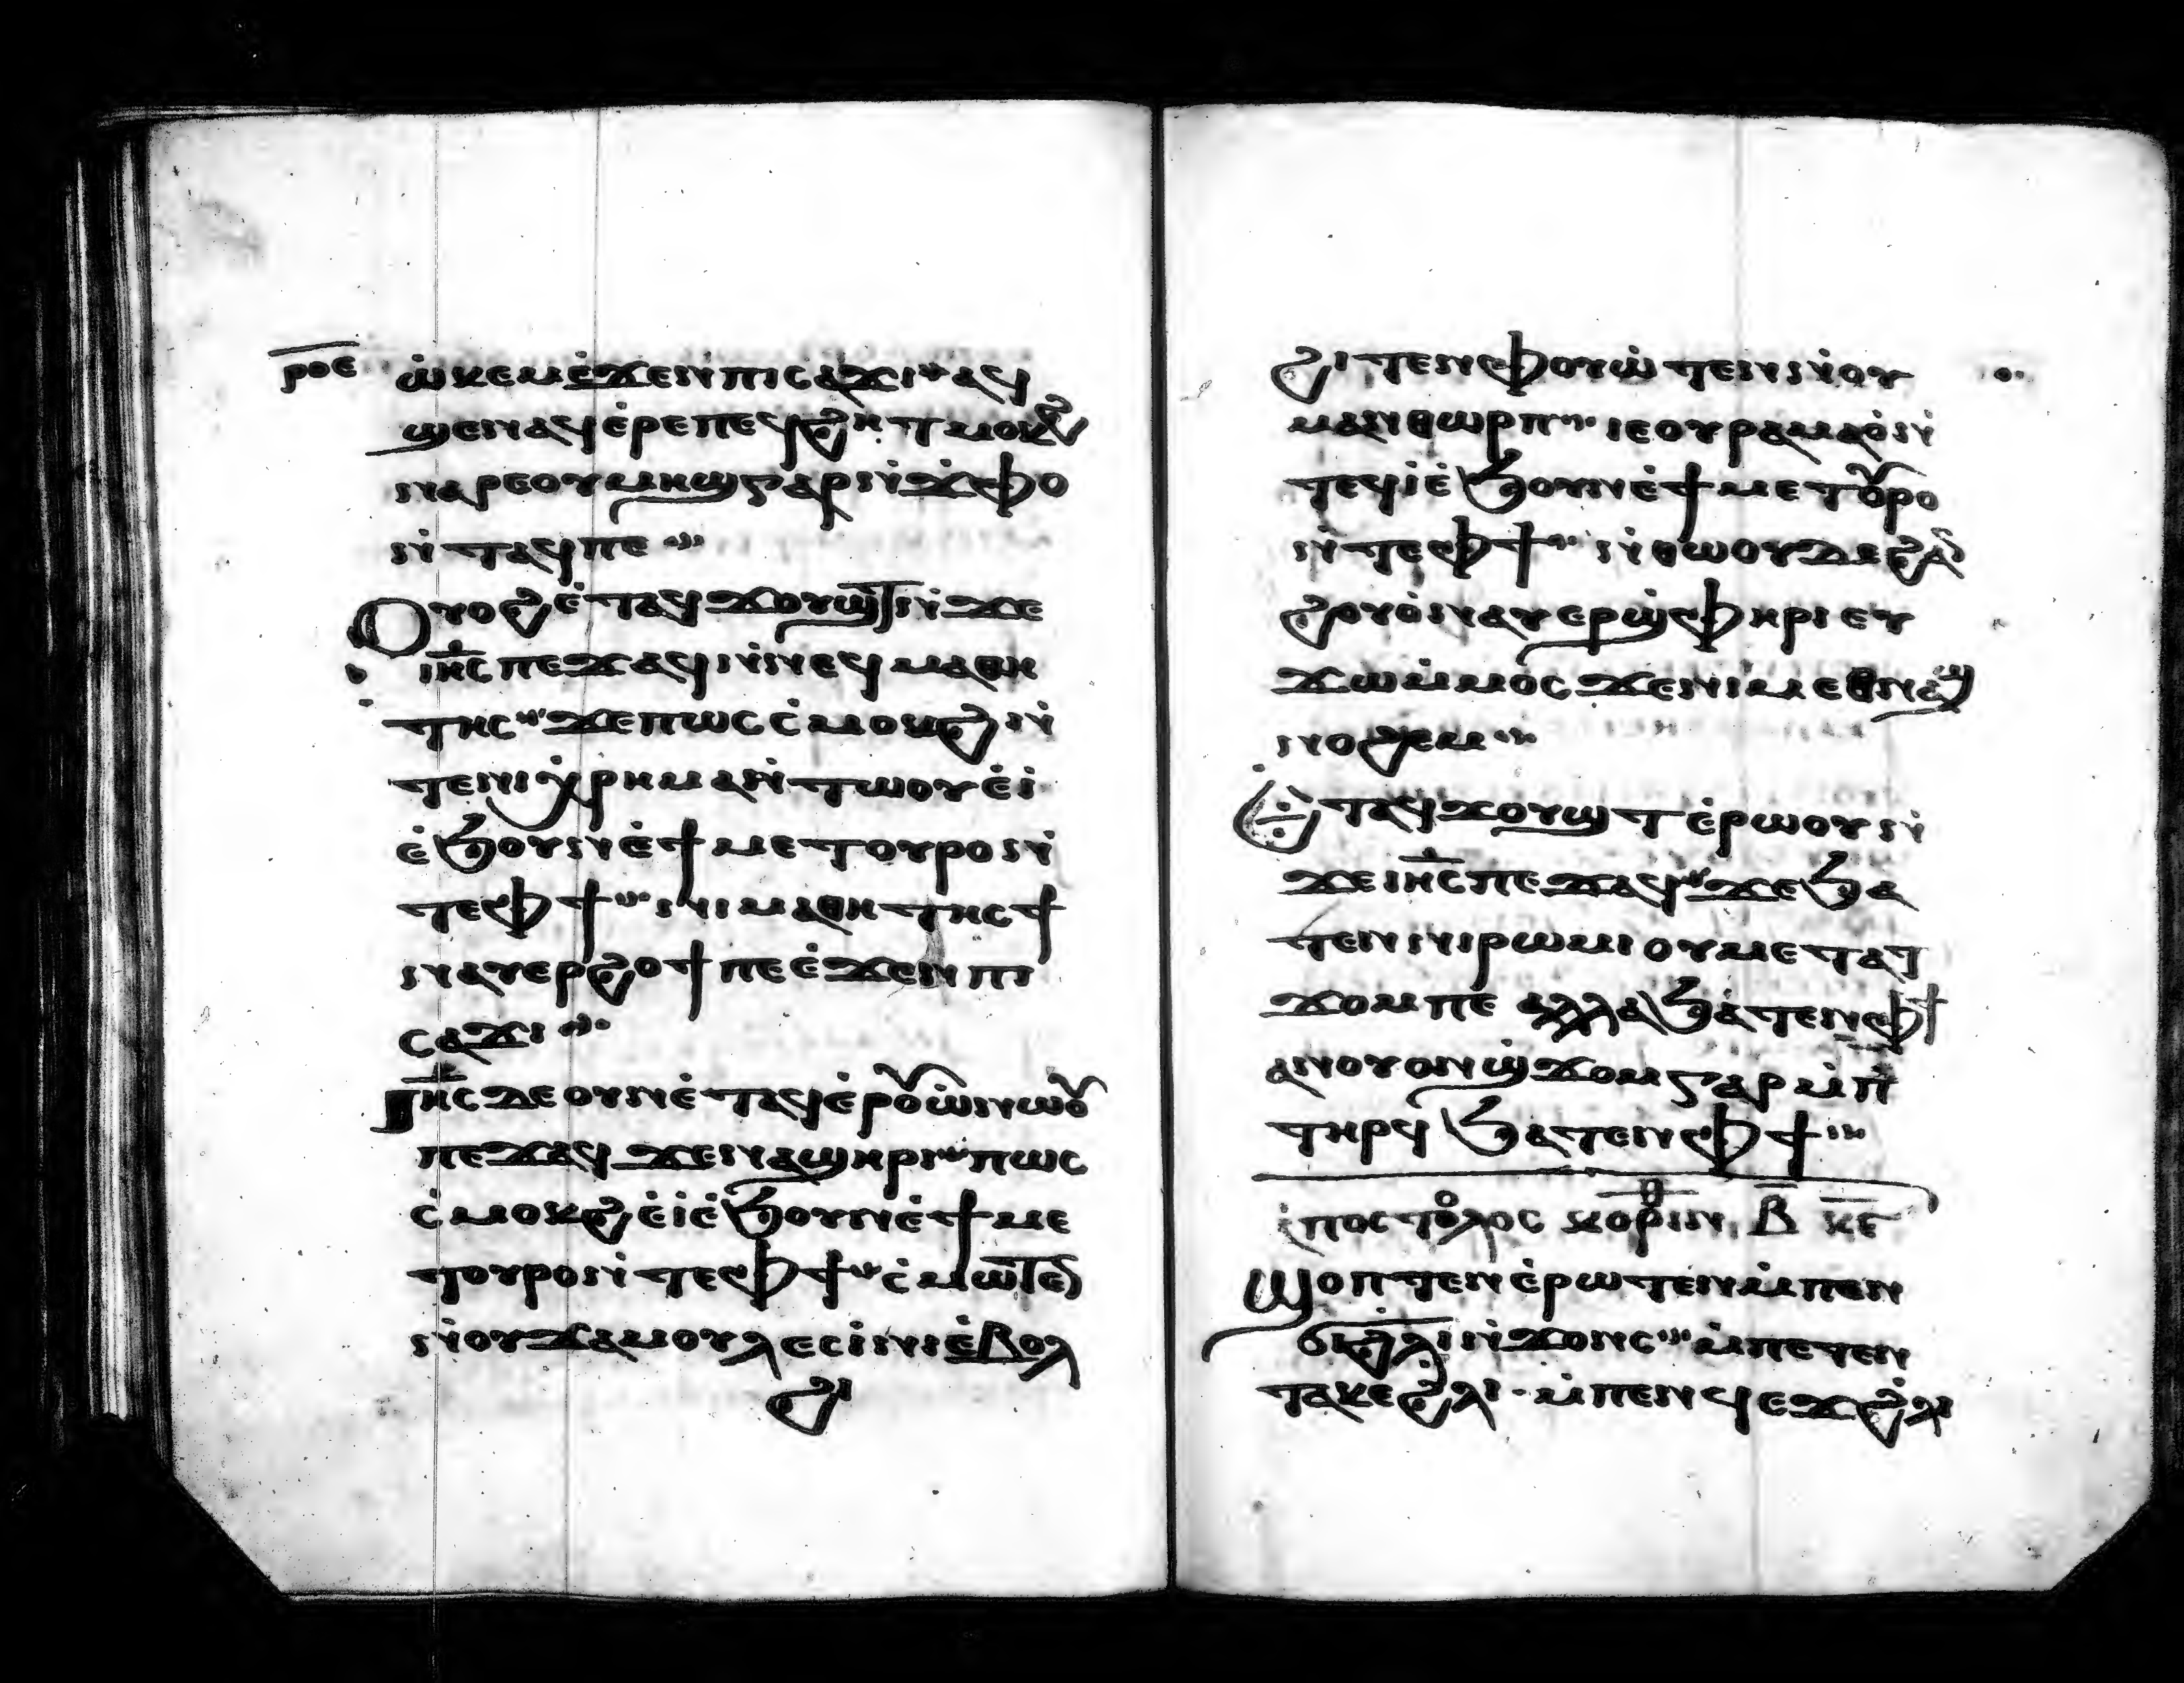 ⲣⲟⲉ
ⲱ̇ⲕⲉⲙⲉ̇ϫⲉⲛⲡⲓⲥⲁϫⲓ ⲁϥ
ϣⲉⲛⲁϥⲉ̇ⲣⲉⲡⲉϥϩⲏⲧⲙⲟⲕϩ
ⲛⲁⲣⲉⲟⲩⲙⲏϣⲅⲁⲣⲛ̇ϫⲫⲟ
ⲛ̇ⲧⲁϥⲡⲉ
Ⲟⲩⲟϩⲉ̇ⲧⲁϥϫⲟⲩϣⲧⲛ̇ϫⲉ
ⲓⲏ̅ⲥ̅ⲡⲉϫⲁϥⲛ̇ⲛⲉϥⲙⲁⲑⲏ
ⲧⲏⲥ ϫⲉⲡⲱⲥⲥ̇ⲙⲟⲕϩⲛ̇
ⲧⲉⲛⲓⲭⲣⲏⲙⲁⲛ̇ⲧⲱⲟⲩⲉ̇ⲓ̇
ⲉ̇ϧⲟⲩⲛⲉ̇ϯⲙⲉⲧⲟⲩⲣⲟⲛ̇
ⲧⲉⲫϯ ⲛⲓⲙⲁⲑⲏⲧⲏⲥϯ
ⲛⲁⲩⲉⲣϩⲟϯⲡⲉⲉ̇ϫⲉⲛⲡⲓ
ⲥⲁϫⲓ
Ⲓⲏ̅ⲥ̅ⲇⲉⲟⲩⲛⲉ̇ⲧⲁϥⲉ̇ⲣⲟⲩⲱ̇ⲛⲱⲟⲩ
ⲡⲉϫⲁϥϫⲉⲛⲁϣⲏⲣⲓ ⲡⲱⲥ
ⲥ̇ⲙⲟⲕϩⲉ̇ⲓ̇ⲉ̇ϧⲟⲩⲛⲉ̇ϯⲙⲉ
ⲧⲟⲩⲣⲟⲛ̇ⲧⲉⲫϯ ⲥ̇ⲙⲱⲧⲉⲛ
ⲛ̇ⲟⲩϫⲁⲙⲟⲩⲗⲉⲥⲓ̇ⲛⲓⲉ̇ⲃⲟⲗ
ϩⲓ
ϩⲓⲧⲉⲛⲫⲟⲩⲱ̇ⲧⲉⲛⲛ̇ⲟⲩ
ⲙⲁⲛⲑⲱⲣⲡ ⲓⲉⲟⲩⲣⲁⲙⲁⲟ̇ⲛ̇
ⲧⲉϥⲓ̇ⲉ̇ϧⲟⲩⲛⲉ̇ϯⲙⲉⲧⲟⲩⲣⲟ
ⲛ̇ⲧⲉⲫϯ ⲛ̇ⲑⲱⲟⲩⲇⲉϩⲁ
ϩⲟⲩⲟ̇ⲛⲁⲩⲉⲣϣ̇ⲫⲏⲣⲓⲉⲩ
ϫⲱⲙ̇ⲙⲟ̇ⲥϫⲉⲛⲓⲙⲉⲑⲛⲁϣ
ⲛⲟϩⲉⲙ
Ⲉ̇ⲧⲁϥϫⲟⲩϣⲧⲉ̇ⲣⲱⲟⲩⲛ̇
ϫⲉⲓⲏ̅ⲥ̅ⲡⲉϫⲁϥ ϫⲉϧⲁ
ⲧⲉⲛⲛⲓⲣⲱⲙⲓⲟⲩⲙⲉⲧⲁⲧ
ϫⲟⲙⲡⲉ ⲁⲗⲗⲁϧⲁ̇ⲧⲉⲛⲫϯ
ⲁⲛⲟⲩⲟⲛϣ̇ϫⲟⲙⲅⲁⲣⲙ̇ⲡ̇
ⲧⲏⲣϥϧⲁⲧⲉⲛⲫϯ
ⲁ̇ⲡⲟⲥⲧⲟⲗⲟⲥ ⲕⲟⲣⲓⲛⲑ ⲃ̅ ⲕ̅ⲉ̅
Ϣⲟⲡⲧⲉⲛⲉ̇ⲣⲱⲧⲉⲛⲙ̇ⲡⲉⲛ
ϭⲓϩⲗⲓⲛ̇ϫⲟⲛⲥ ⲙ̇ⲡⲉⲧⲉⲛ
ⲧⲁⲕⲉϩⲗⲓ ⲙ̇ⲡⲉⲛϥⲉϫϩⲗⲓ